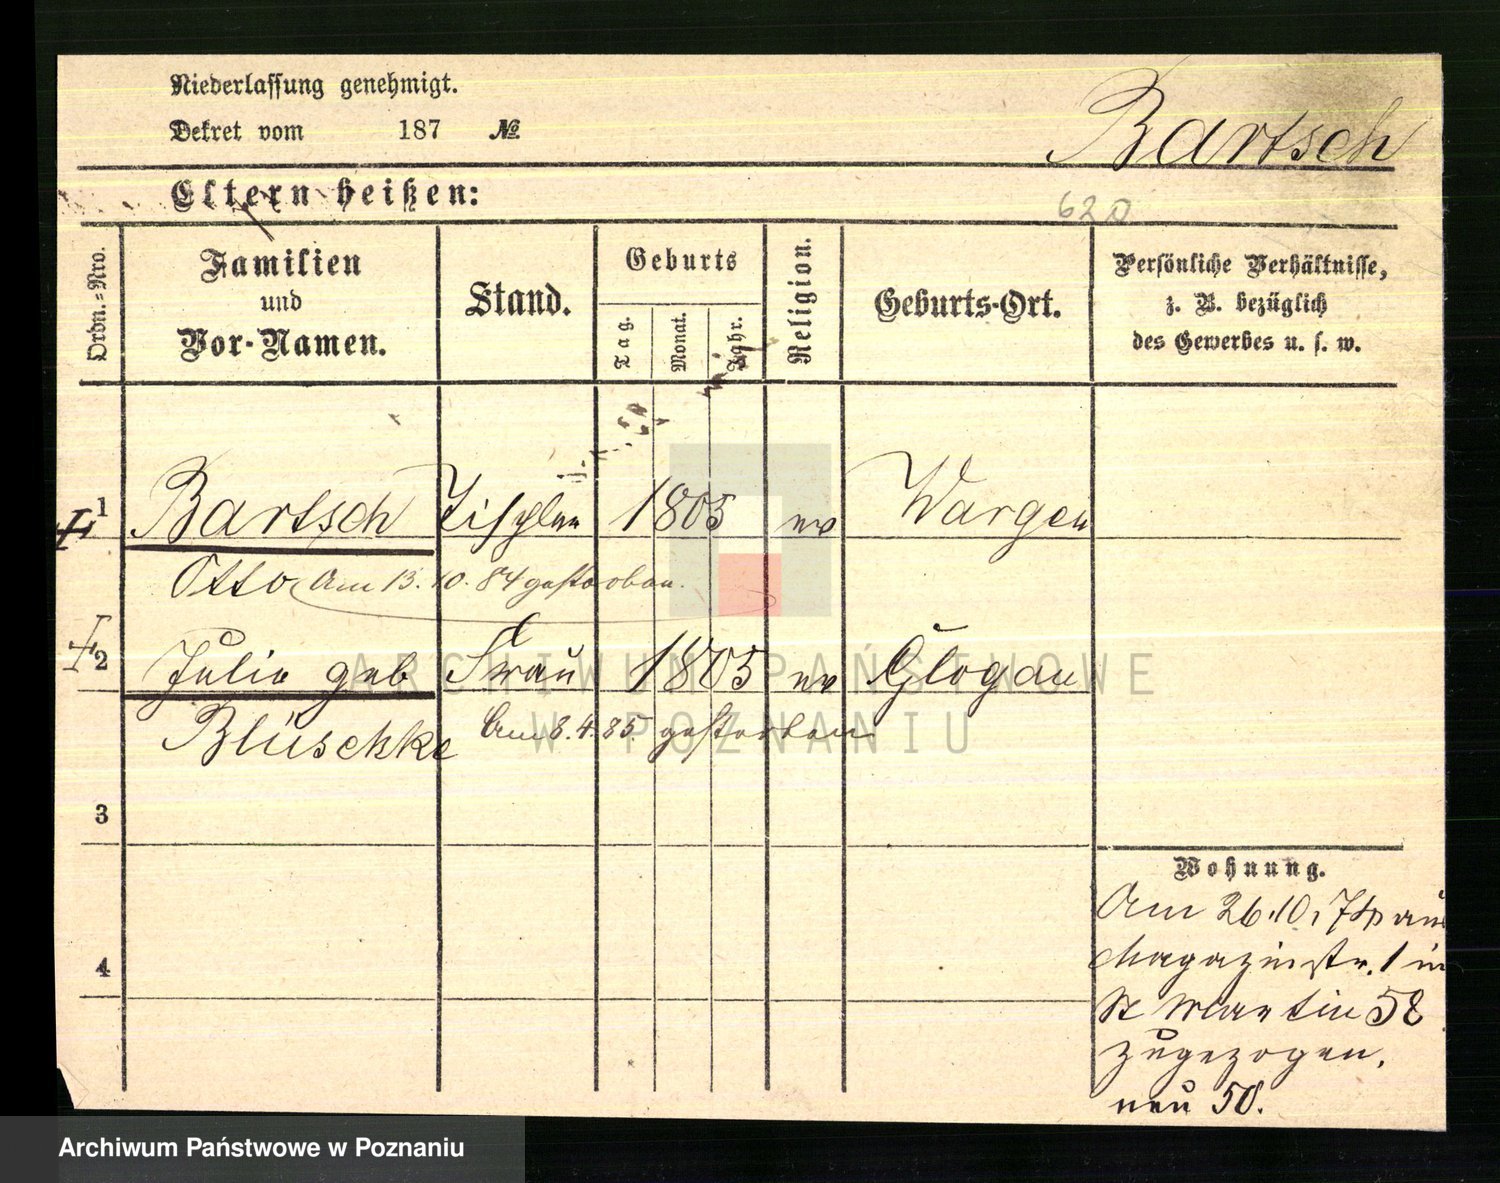 Niederlassung genehmigt.
Dekret vom 187 №
Bartsch
Eltern heißen:
620
Ordn.=Nro.
Familien und Vor-Namen.
Stand.
Geburts
Tag. Monat. Jahr.
Religion.
Geburts-Ort.
Persönliche Verhältnisse,
z. B. bezüglich
des Gewerbes u. s. w.
1 Bartsch Tischler 1805 ev Wargen
Otto am 13. 10. 84 gestorben.
2 Julie geb Frau 1805 ev Glogau
Blüschke Am 8. 4. 85. gestorben
3
4
Wohnung.
Am 26.10. aus
Magazinstr. 1 in
St Martin 58
zugezogen.
neu 50.
ARCHIWUM PAŃSTWOWE
W POZNANIU
Archiwum Państwowe w Poznaniu